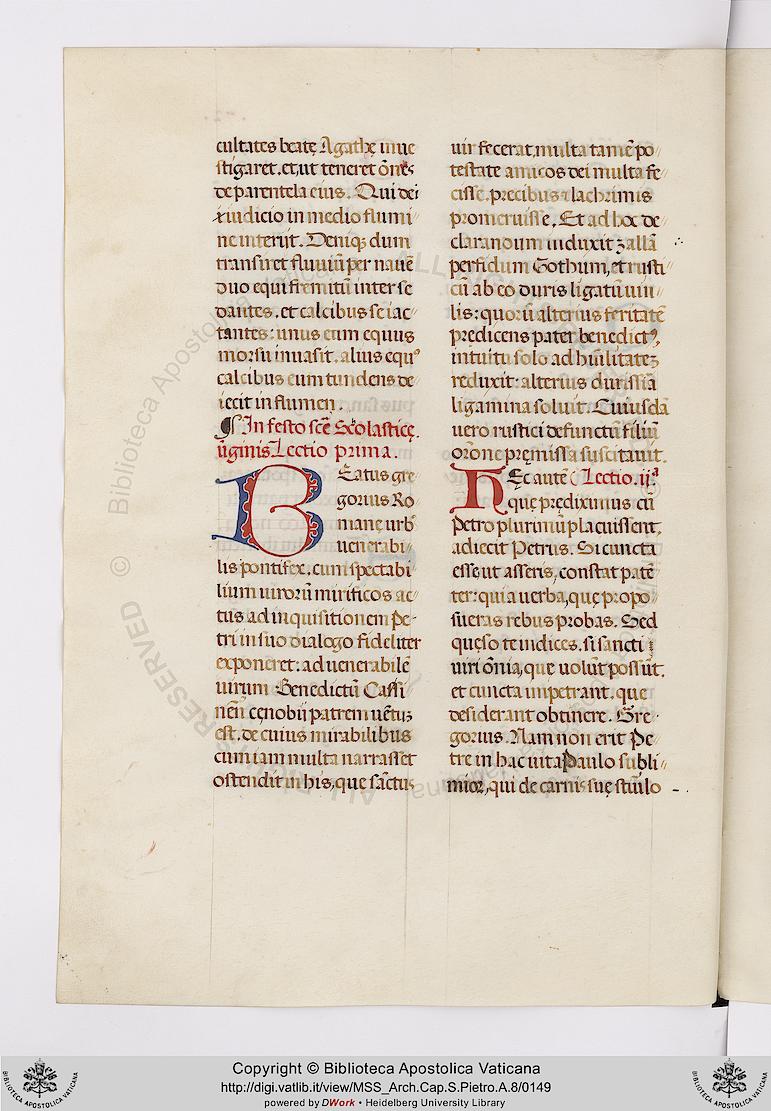 cultates beatę Agathę inue
stigaret. et, ut teneret õnes
de parentela eius. Qui dei
iudicio in medio flumi
ne interijt. Deniqꝫ dum
transiret fluuiũ per nauẽ
duo equi fremitũ inter se
dantes. et calcibus se iac
tantes: unus eum equus
morsu inuasit. alius equꝰ
calcibus eum tundens de
iecit in flumen.
¶ In festo scẽ Scolasticę.
ũginis. Lectio prima.
BEatus gre
gorius Ro
manę urbꝭ
uenerabi
lis pontifex. cum spectabi
lium uirorũ mirificos ac
tus ad inquisitionem Pe
tri in suo dialogo fideliter
exponeret. ad uenerabilẽ
uirum Benedictũ Cassi
nẽn cęnobij patrem uẽtuꝫ
est. de cuius mirabilibus
cum iam multa narrasset
ostendit in his, que sãctus
uir fecerat, multa tamẽ po
testate amicos dei multa fe
cisse. precibus ⁊ lachrimis
promeruisse. Et ad hoc de
clarandum induxit ꝫallã
perfidum Gothum, et rusti
cũ ab eo duris ligatũ uin
lis: quorũ alterius feritatẽ
predicens pater benedictꝰ,
intuitu solo ad hũilitateꝫ
reduxit: alterius durissiã
ligamina soluit. Cuiusdã
uero rustici defunctũ filiũ
orõne pręmissa suscitauit.
HEc autẽ Lectio. ijª
quę prędiximus cũ
Petro plurimũ placuissent.
adiecit Petrus. Si cuncta
esse, ut asseris, constat patẽ
ter: quia uerba, quę propo
sueras rebus probas. Sed
quęso te indices. si sancti
uiri õnia, que uolũt possũt.
et cuncta impetrant. que
desiderant obtinere. Gre
gorius. Nam non erit Pe
tre in hac uita Paulo subli
mior, qui de carnis suę stiũlo
ALL RIGHTS RESERVED © Biblioteca Apostolica Vaticana
Copyright © Biblioteca Apostolica Vaticana
http://digi.vatlib.it/view/MSS_Arch.Cap.S.Pietro.A.8/0149
powered by DWork • Heidelberg University Library
BIBLIOTECA APOSTOLICA VATICANA
BIBLIOTECA APOSTOLICA VATICANA